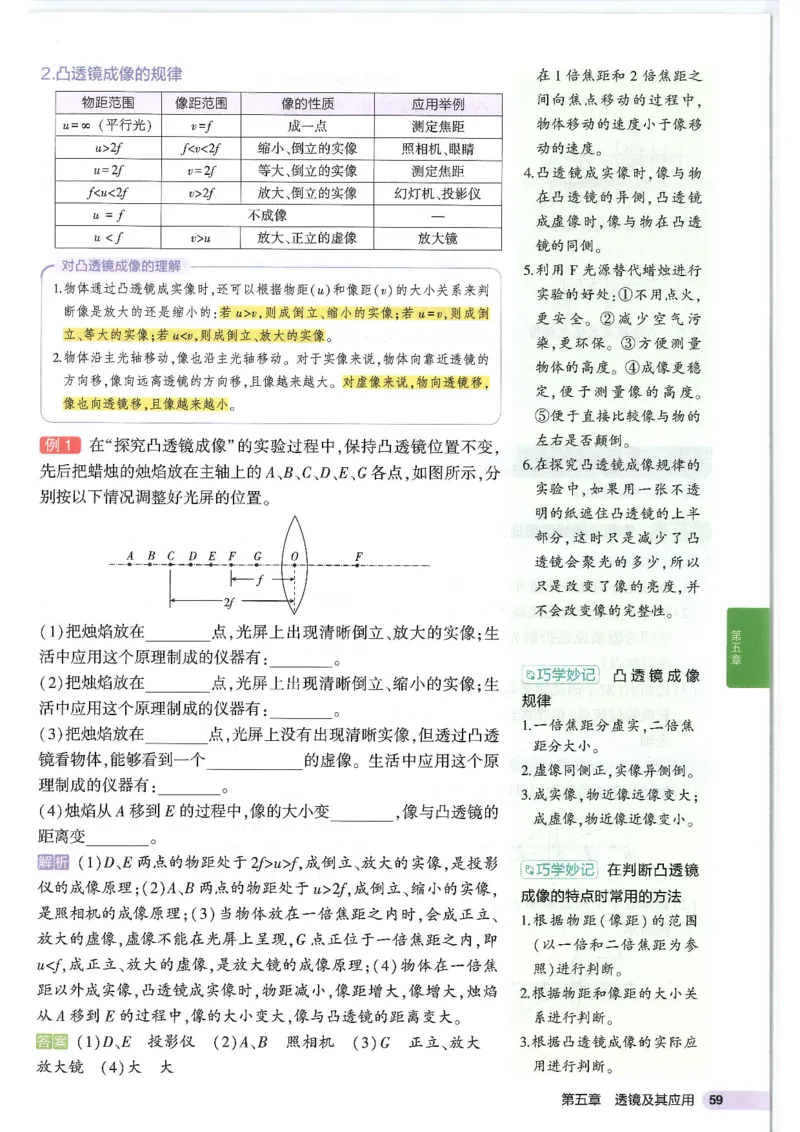 2.凸透镜成像的规律
物距范围 像距范围 像的性质 应用举例
u=∞（平行光） v=f 成一点 测定焦距
u>2f f<v<2f 缩小、倒立的实像 照相机、眼睛
u=2f v=2f 等大、倒立的实像 测定焦距
f<u<2f v>2f 放大、倒立的实像 幻灯机、投影仪
u = f 不成像 —
u < f v>u 放大、正立的虚像 放大镜
对凸透镜成像的理解
1.物体通过凸透镜成实像时,还可以根据物距(u)和像距(v)的大小关系来判
断像是放大的还是缩小的:若u>v,则成倒立、缩小的实像;若u=v,则成倒
立、等大的实像;若u<v,则成倒立、放大的实像。
2.物体沿主光轴移动,像也沿主光轴移动。对于实像来说,物体向靠近透镜的
方向移,像向远离透镜的方向移,且像越来越大。对虚像来说,物向透镜移,
像也向透镜移,且像越来越小。
例1 在“探究凸透镜成像”的实验过程中,保持凸透镜位置不变,
先后把蜡烛的烛焰放在主轴上的A、B、C、D、E、G各点,如图所示,分
别按以下情况调整好光屏的位置。
A B C D E F G O F
f
2f
(1)把烛焰放在______点,光屏上出现清晰倒立、放大的实像;生
活中应用这个原理制成的仪器有:______。
(2)把烛焰放在______点,光屏上出现清晰倒立、缩小的实像;生
活中应用这个原理制成的仪器有:______。
(3)把烛焰放在______点,光屏上没有出现清晰实像,但透过凸透
镜看物体,能够看到一个_________的虚像。生活中应用这个原
理制成的仪器有:______。
(4)烛焰从A移到E的过程中,像的大小变______,像与凸透镜的
距离变______。
解析 (1)D、E两点的物距处于2f>u>f,成倒立、放大的实像,是投影
仪的成像原理;(2)A、B两点的物距处于u>2f,成倒立、缩小的实像,
是照相机的成像原理;(3)当物体放在一倍焦距之内时,会成正立、
放大的虚像,虚像不能在光屏上呈现,G点正位于一倍焦距之内,即
u<f,成正立、放大的虚像,是放大镜的成像原理;(4)物体在一倍焦
距以外成实像,凸透镜成实像时,物距减小,像距增大,像增大,烛焰
从A移到E的过程中,像的大小变大,像与凸透镜的距离变大。
答案 (1)D、E 投影仪 (2)A、B 照相机 (3)G 正立、放大
放大镜 (4)大 大
在1倍焦距和2倍焦距之
间向焦点移动的过程中,
物体移动的速度小于像移
动的速度。
4.凸透镜成实像时,像与物
在凸透镜的异侧,凸透镜
成虚像时,像与物在凸透
镜的同侧。
5.利用F光源替代蜡烛进行
实验的好处:①不用点火,
更安全。②减少空气污
染,更环保。③方便测量
物体的高度。④成像更稳
定,便于测量像的高度。
⑤便于直接比较像与物的
左右是否颠倒。
6.在探究凸透镜成像规律的
实验中,如果用一张不透
明的纸遮住凸透镜的上半
部分,这时只是减少了凸
透镜会聚光的多少,所以
只是改变了像的亮度,并
不会改变像的完整性。
巧学妙记 凸透镜成像
规律
1.一倍焦距分虚实,二倍焦
距分大小。
2.虚像同侧正,实像异侧倒。
3.成实像,物近像远像变大;
成虚像,物近像近像变小。
巧学妙记 在判断凸透镜
成像的特点时常用的方法
1.根据物距(像距)的范围
(以一倍和二倍焦距为参
照)进行判断。
2.根据物距和像距的大小关
系进行判断。
3.根据凸透镜成像的实际应
用进行判断。
第五章
第五章 透镜及其应用 59